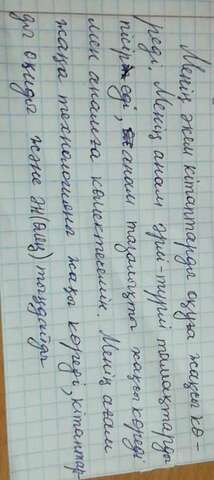 Менің әкем кітаптарды оқуға жақсы кө-
реді. Менің анам әрі-түрлі тамақтарды
пісіреді, анам тазалықты жақсы көреді
мен анамға көмектесемін. Менің ағам
жаңа технологияны жақсы көреді, кітаптар
ды оқиды және ән(әнді) тыңдайды